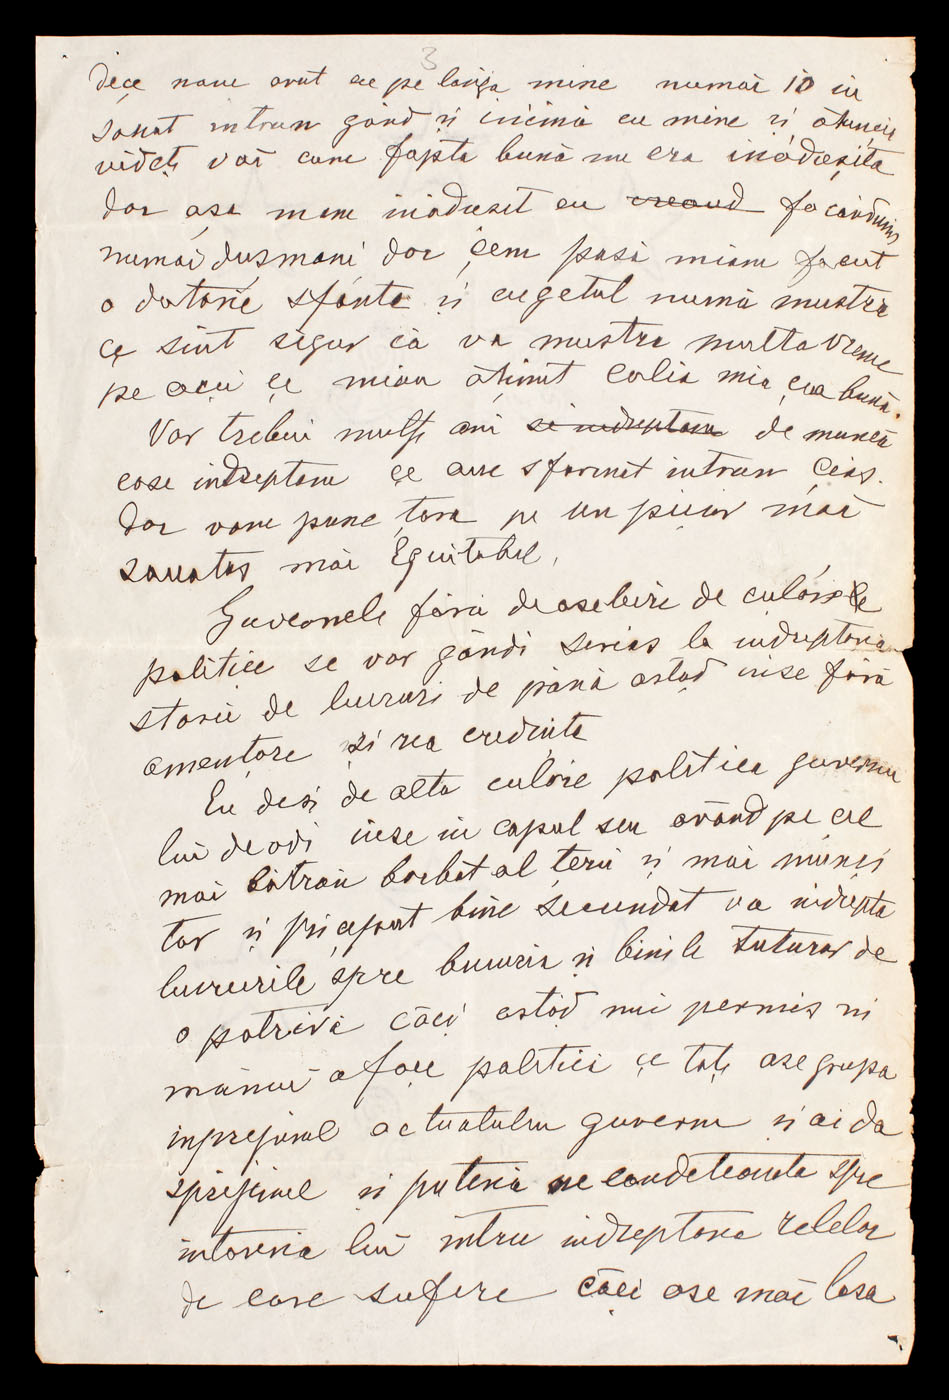 3
dece nam avut eu pe langa mine numai 10 in
sanat intrun gând și inimă cu mine și atunci
videți voi cum fapta bună nu era inădușita
dar așa mam inădusit eu creand facândumi
numai dușmani dar çem pasă miam facut
o datorie sfânta și cugetul numă mustra
çe sint sigur că va mustra multa vreme
pe acei çe miau ațimut calia mia cea bună.
Vor trebui mulți ani si indreptam de muncă
case indreptam çe am sfarmat intrun çias.
dar vom pune țara pe un picior mai
sanatos mai Equitabel,
Guveornele fără deosebire de culoarele
politice se vor gândi serios la indreptaria
starii de lucruri de pănă astăd inse fără
amențare și rea credința
Eu deși de alta culoare politica guvernu
lui de adi inse in capul seu avănd pe cel
mai bătrân barbat al țerii și mai munci
tor și priceput bine secundat va indrepta
lucrurile spre bucuria și binile tuturor de
o potrivă căci astăd nui permis ni
mănui a façe politică çe toți ase grupa
inprejurul actualului guvern și ai da
sprijinul și puteria necondeteonata spre
intoria lui intru indreptaria relelor
de care sufere căci ase mai lasa